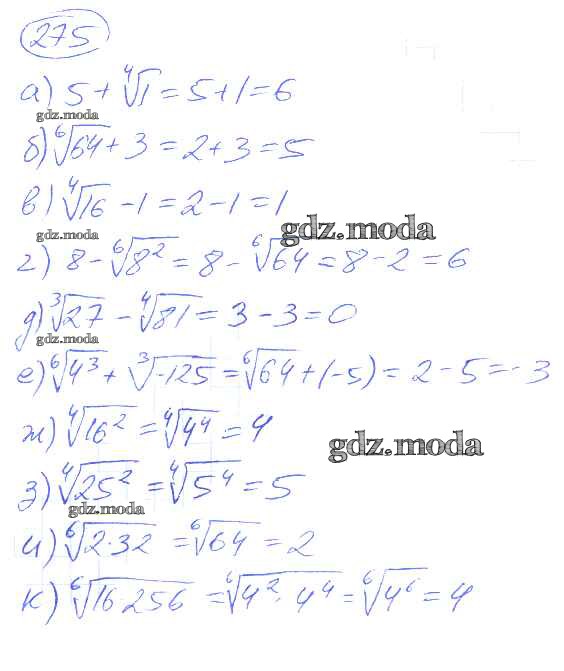 275
а) 5 + ⁴√1 = 5 + 1 = 6
gdz.moda
б) ⁶√64 + 3 = 2 + 3 = 5
в) ⁴√16 - 1 = 2 - 1 = 1
gdz.moda
gdz.moda
г) 8 - ⁶√8² = 8 - ⁶√64 = 8 - 2 = 6
д) ³√27 - ⁴√81 = 3 - 3 = 0
gdz.moda
е) ⁶√4³ + ³√-125 = ⁶√64 + (-5) = 2 - 5 = -3
ж) ⁴√16² = ⁴√4⁴ = 4
gdz.moda
з) ⁴√25² = ⁴√5⁴ = 5
gdz.moda
и) ⁶√2·32 = ⁶√64 = 2
к) ⁶√16·256 = ⁶√4²·4⁴ = ⁶√4⁶ = 4